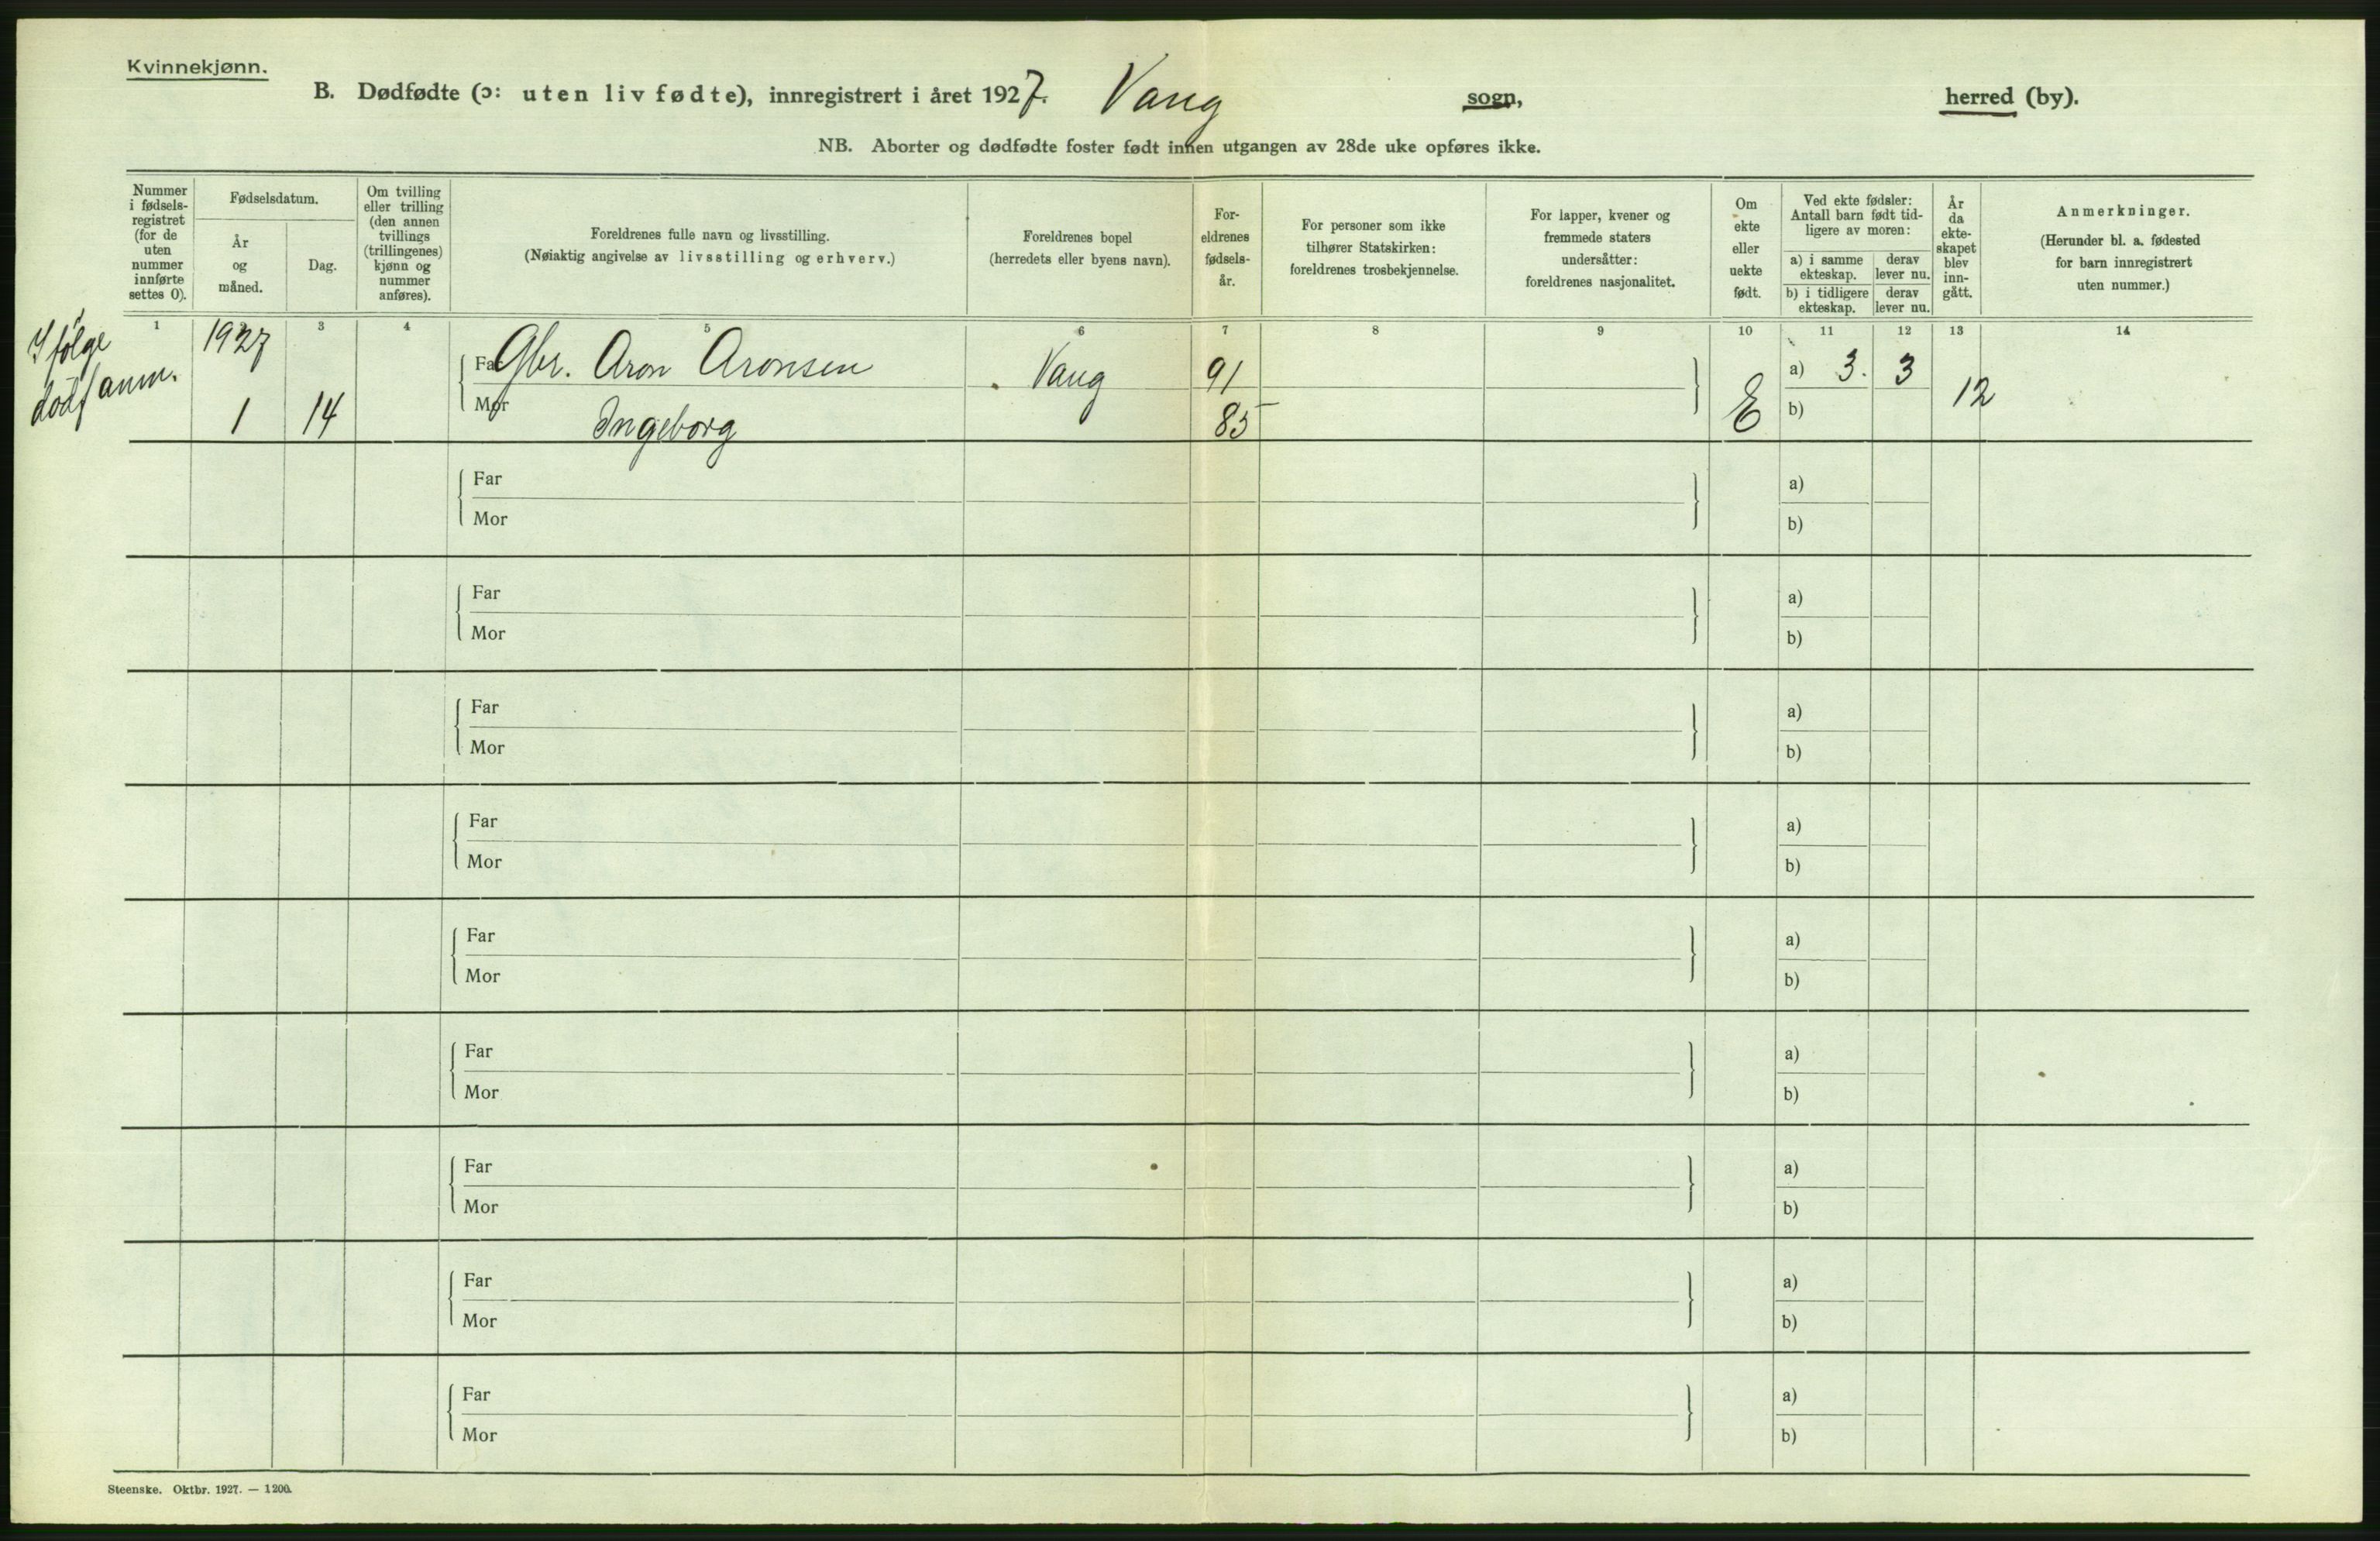 Kvinnekjønn.
B. Dødfødte (ɔ: uten liv fødte), innregistrert i året 1927. Vang sogn, herred (by).
NB. Aborter og dødfødte foster født innen utgangen av 28de uke opføres ikke.
Nummer i fødsels-registret (for de uten nummer innførte settes 0).
Fødselsdatum.
År og måned.
Dag.
Om tvilling eller trilling (den annen tvillings (trillingenes) kjønn og nummer anføres).
Foreldrenes fulle navn og livsstilling.
(Nøiaktig angivelse av livsstilling og erhverv.)
Foreldrenes bopel
(herredets eller byens navn).
For-eldrenes fødsels-år.
For personer som ikke tilhører Statskirken: foreldrenes trosbekjennelse.
For lapper, kvener og fremmede staters undersåtter: foreldrenes nasjonalitet.
Om ekte eller uekte født.
Ved ekte fødsler: Antall barn født tid-ligere av moren:
a) i samme ekteskap. derav lever nu.
b) i tidligere ekteskap. derav lever nu.
År da ekte-skapet blev inn-gått.
Anmerkninger.
(Herunder bl. a. fødested for barn innregistrert uten nummer.)
1 2 3 4 5 6 7 8 9 10 11 12 13 14
Ifølge
dødfanm.
1927
Far Gbr. Aron Aronsen Vang 91 a) 3. 3
1 14 Mor Ingeborg 85 E b) 12
Far a)
Mor b)
Far a)
Mor b)
Far a)
Mor b)
Far a)
Mor b)
Far a)
Mor b)
Far a)
Mor b)
Far a)
Mor b)
Far a)
Mor b)
Far a)
Mor b)
Steenske. Oktbr. 1927. — 1200.